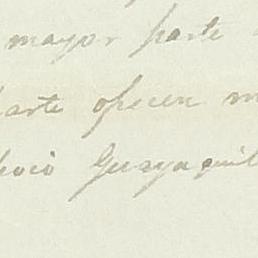 mayor parte
parte ofrecen m
Guayaquil